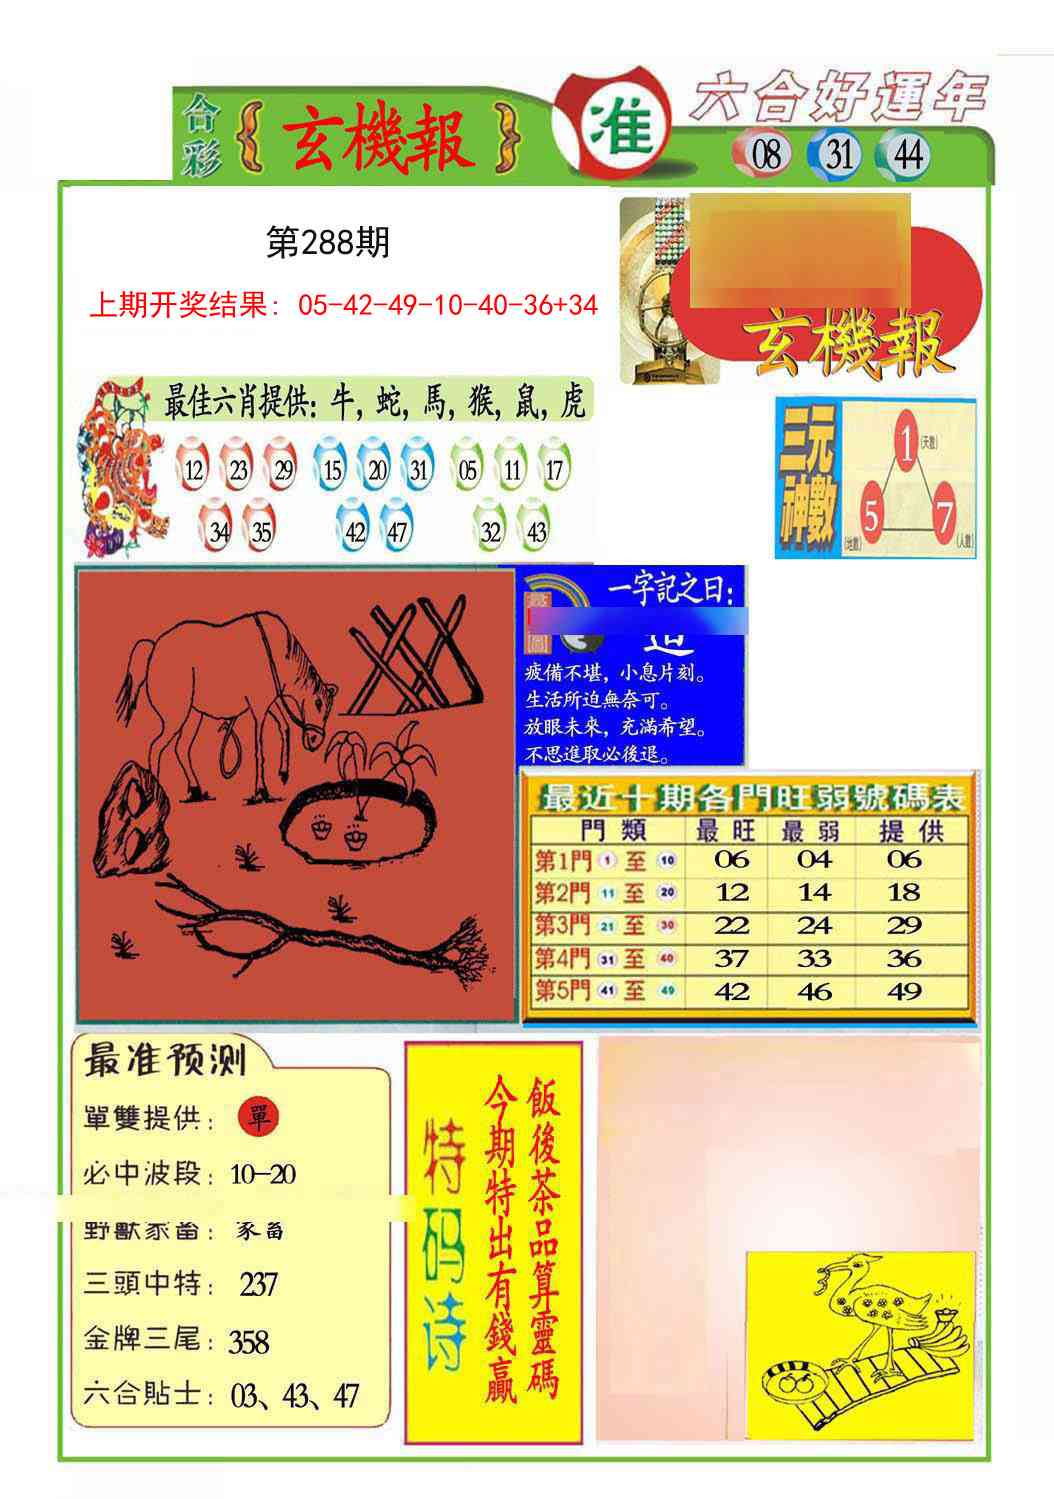 六合好運年
合彩
玄機報
准
08 31 44
第288期
上期开奖结果: 05-42-49-10-40-36+34
玄機報
最佳六肖提供: 牛, 蛇, 馬, 猴, 鼠, 虎
12 23 29 15 20 31 05 11 17
34 35 42 47 32 43
三元神數
1 (天數)
5 (地數)
7 (人數)
一字記之日:
疲備不堪, 小息片刻。
生活所迫無奈可。
放眼未來, 充滿希望。
不思進取必後退。
最近十期各門旺弱號碼表
門類 最旺 最弱 提供
第1門 1 至 10 06 04 06
第2門 11 至 20 12 14 18
第3門 21 至 30 22 24 29
第4門 31 至 40 37 33 36
第5門 41 至 49 42 46 49
最准预测
單雙提供: 單
必中波段: 10-20
野獸家畜: 家畜
三頭中特: 237
金牌三尾: 358
六合貼士: 03、43、47
特码诗
飯後茶品算靈碼
今期特出有錢贏